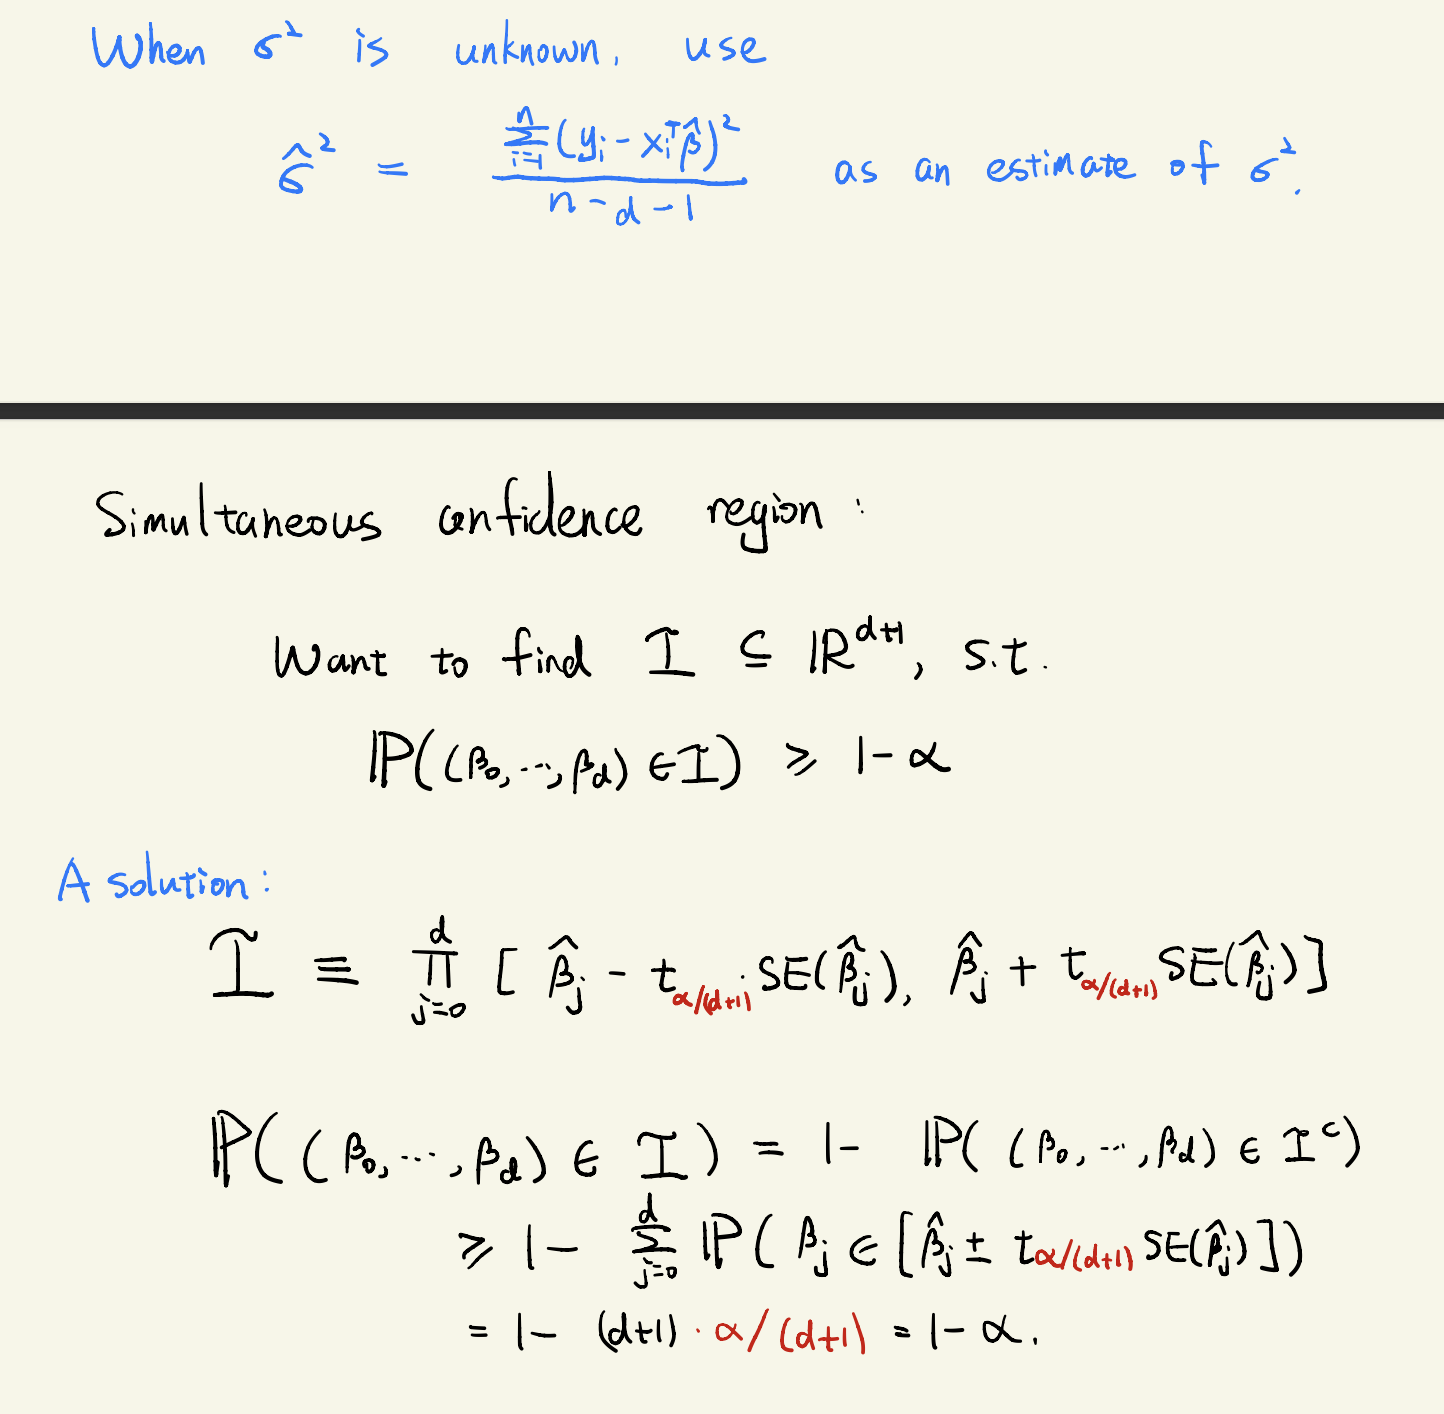 When σ² is unknown, use
σ̂² = \frac{\sum_{i=1}^{n}(y_i - x_i^T β̂)^2}{n-d-1} as an estimate of σ².
Simultaneous confidence region:
Want to find I ⊆ ℝ^{d+1}, s.t.
ℙ((β₀, ⋯, β_d) ∈ I) ⩾ 1-α
A solution:
I ≡ ∏_{j=0}^{d} [β̂_j - t_{α/(d+1)} SE(β̂_j), β̂_j + t_{α/(d+1)} SE(β̂_j)]
ℙ((β₀, ⋯, β_d) ∈ I) = 1- ℙ((β₀, ⋯, β_d) ∈ I^c)
⩾ 1- ∑_{j=0}^{d} ℙ(β_j ∈ [β̂_j ± t_{α/(d+1)} SE(β̂_j)])
= 1- (d+1) · α/(d+1) = 1-α.